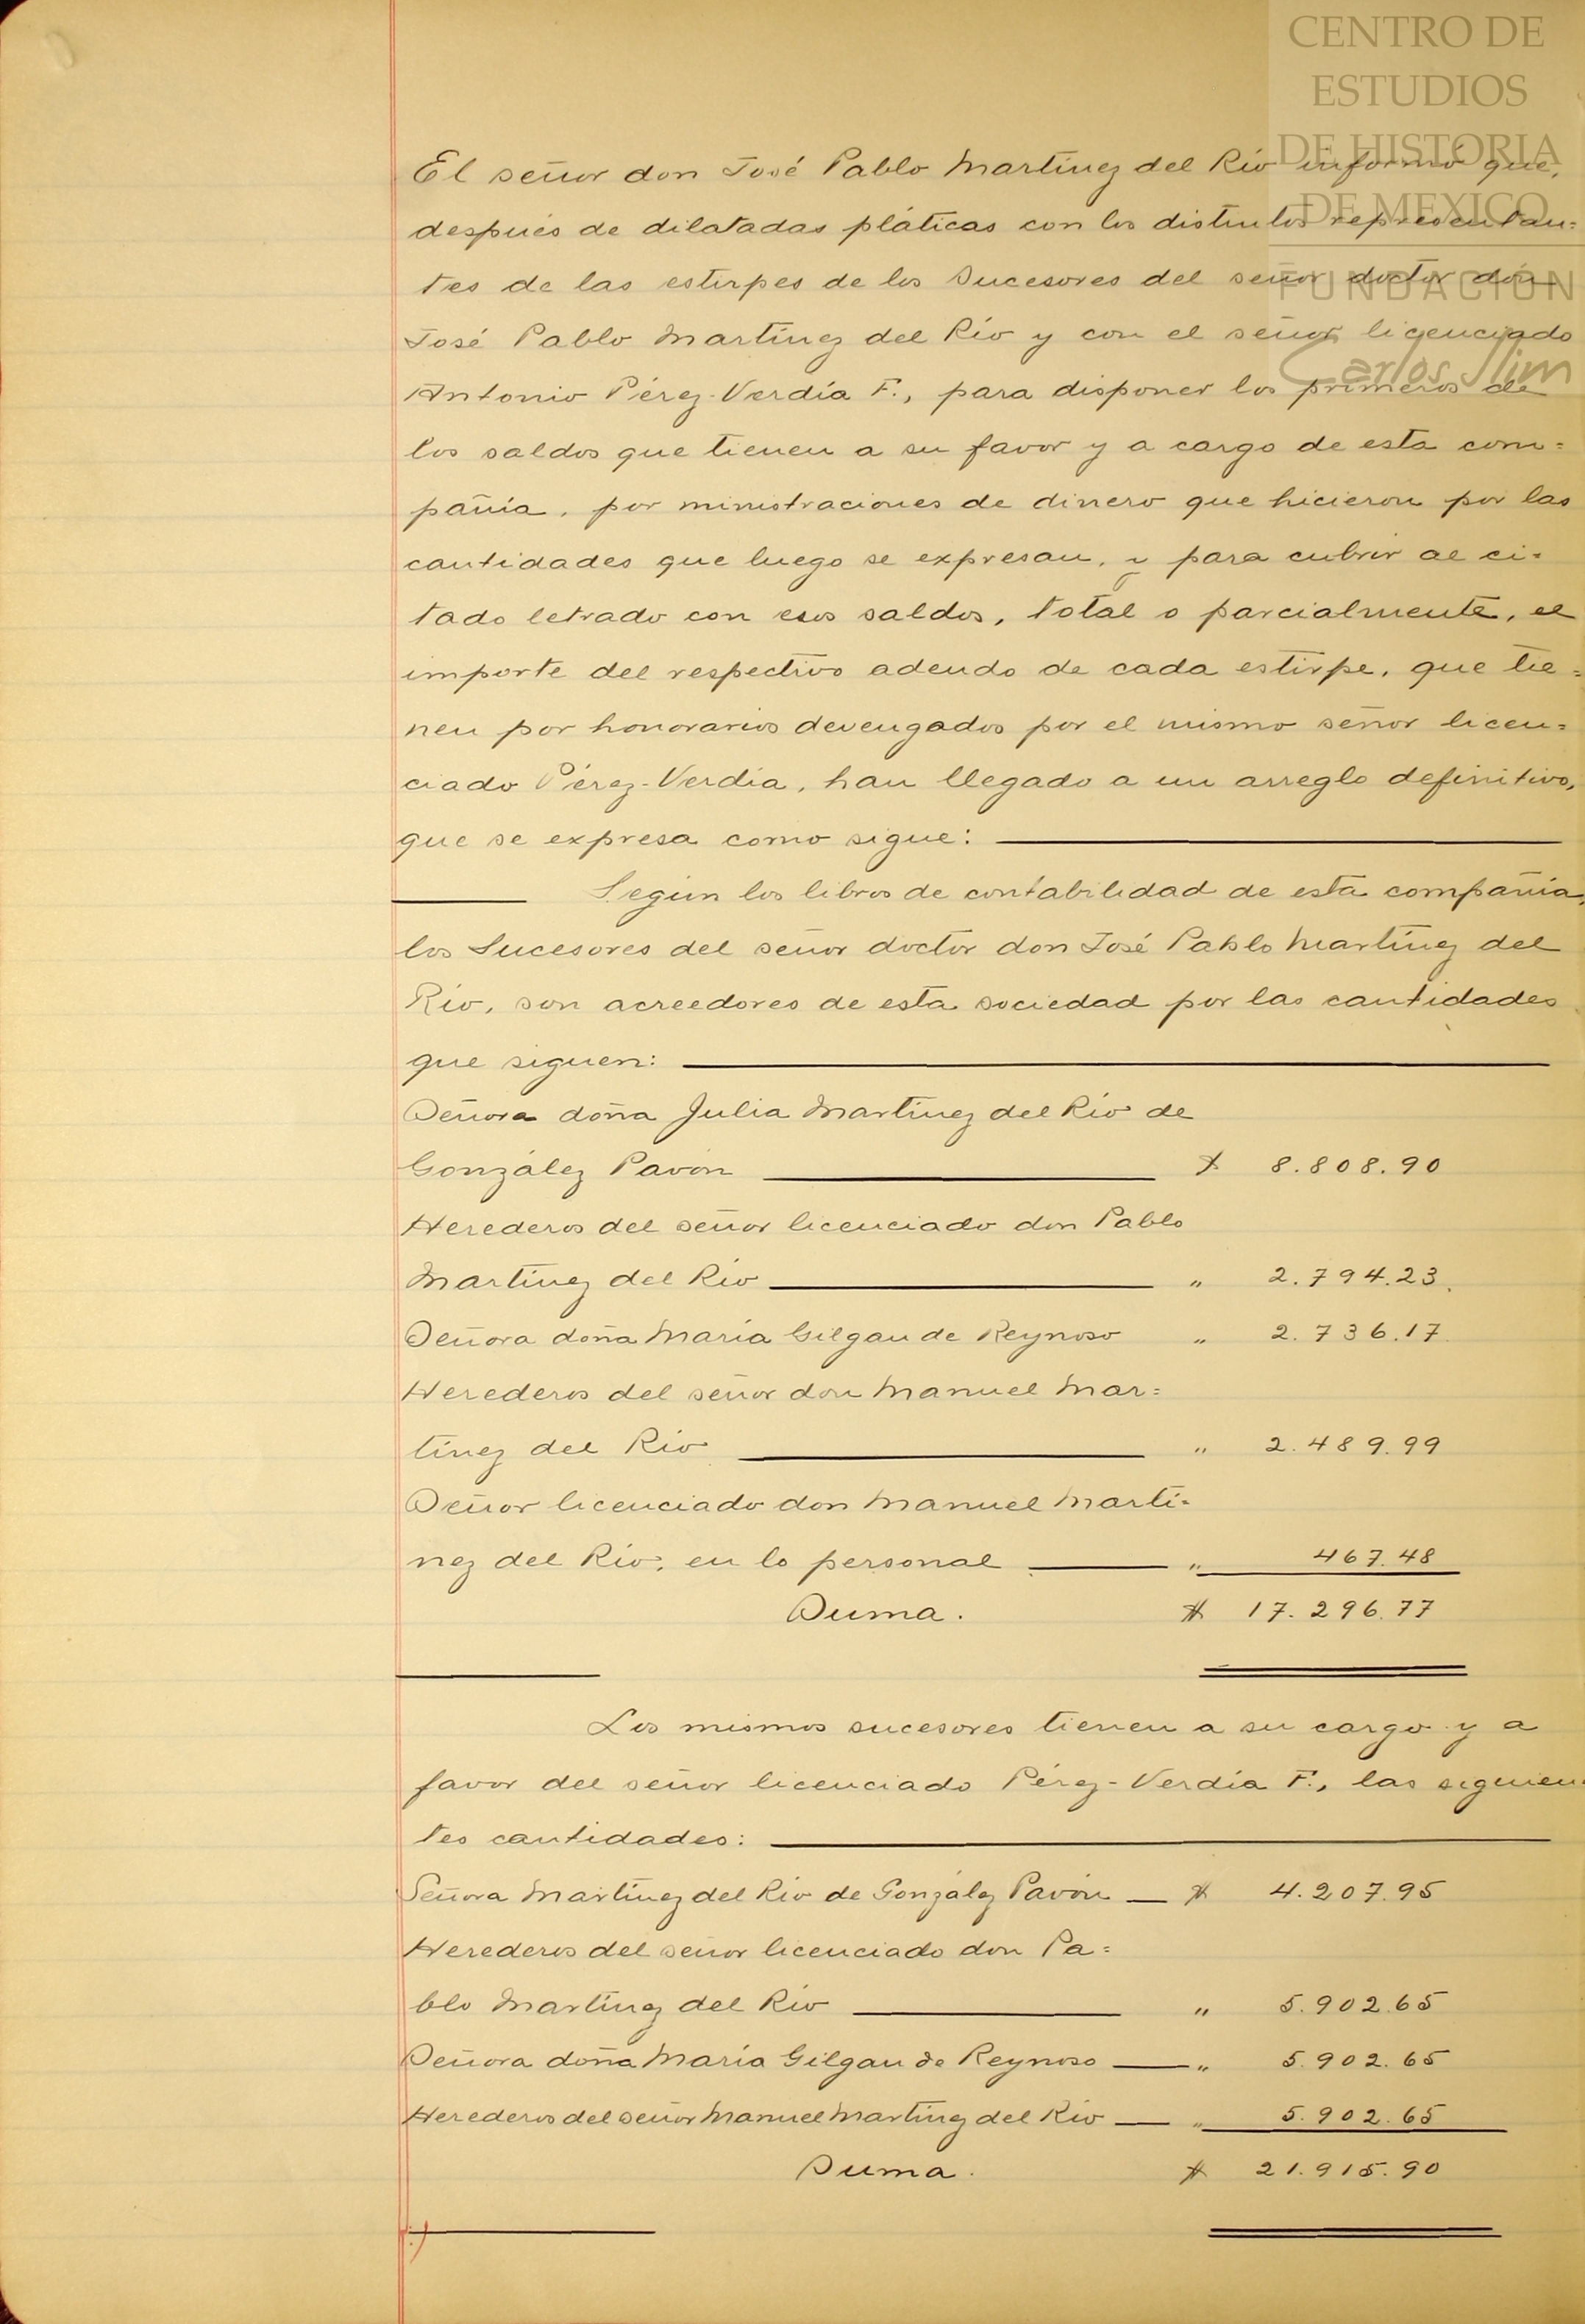 CENTRO DE
ESTUDIOS
DE HISTORIA
DE MEXICO
FUNDACIÓN
Carlos Slim
El señor don José Pablo Martínez del Río informó que,
después de dilatadas pláticas con los distintos representan=
tes de las estirpes de los Sucesores del señor doctor don
José Pablo Martínez del Río y con el señor licenciado
Antonio Pérez-Verdía F., para disponer los primeros de
los saldos que tienen a su favor y a cargo de esta com=
pañía, por ministraciones de dinero que hicieron por las
cantidades que luego se expresan, y para cubrir al ci=
tado letrado con esos saldos, total o parcialmente, el
importe del respectivo adeudo de cada estirpe, que tie=
nen por honorarios devengados por el mismo señor licen=
ciado Pérez-Verdía, han llegado a un arreglo definitivo,
que se expresa como sigue:
Según los libros de contabilidad de esta compañía,
los Sucesores del señor doctor don José Pablo Martínez del
Río, son acreedores de esta sociedad por las cantidades
que siguen:
Señora doña Julia Martínez del Río de
González Pavón $ 8.808.90
Herederos del señor licenciado don Pablo
Martínez del Río " 2.794.23.
Señora doña María Gilgan de Reynoso " 2.736.17.
Herederos del señor don Manuel Mar=
tínez del Río " 2.489.99
Señor licenciado don Manuel Martí=
nez del Río, en lo personal " 467.48
Suma. $ 17.296.77
Los mismos sucesores tienen a su cargo y a
favor del señor licenciado Pérez-Verdía F., las siguien=
tes cantidades:
Señora Martínez del Río de González Pavón $ 4.207.95
Herederos del señor licenciado don Pa=
blo Martínez del Río " 5.902.65
Señora doña María Gilgan de Reynoso " 5.902.65
Herederos del señor Manuel Martínez del Río " 5.902.65
Suma. $ 21.915.90